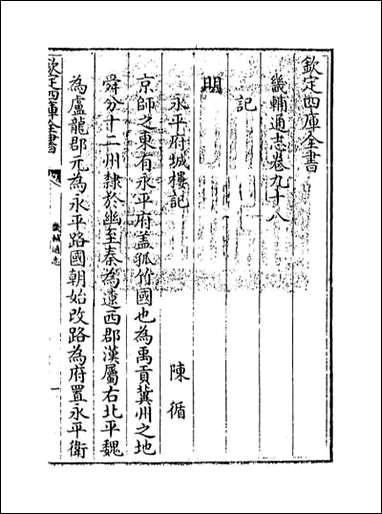 欽定四庫全書
畿輔通志卷九十八
記
明
永平府城樓記 陳循
京師之東有永平府蓋孤竹國也為禹貢冀州之地
舜分十二州隸於幽至秦為遼西郡漢屬右北平魏
為盧龍郡元為永平路國朝始改路為府置永平衛
欽定四庫全書
畿輔通志
一